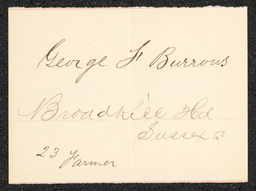 George F Burrows
Broadkill Hd
Sussex Co
23 Farmer